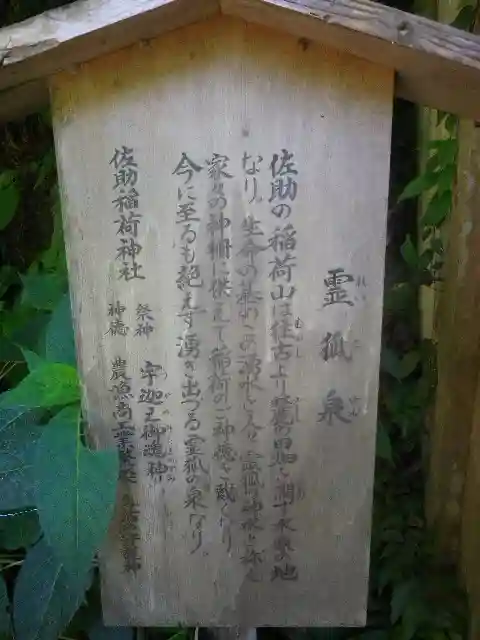 霊狐泉
佐助の稲荷山は往古より麓の田畑を潤す水源の地
なり。生命の基のこの湧水をみな霊狐の神水と称え
家々の神棚に供えて稲荷のご神徳を戴くなり
今に至るも絶えず湧き出づる霊狐の泉なり。
佐助稲荷神社
祭神 宇迦之御魂神
神徳 農漁商工業